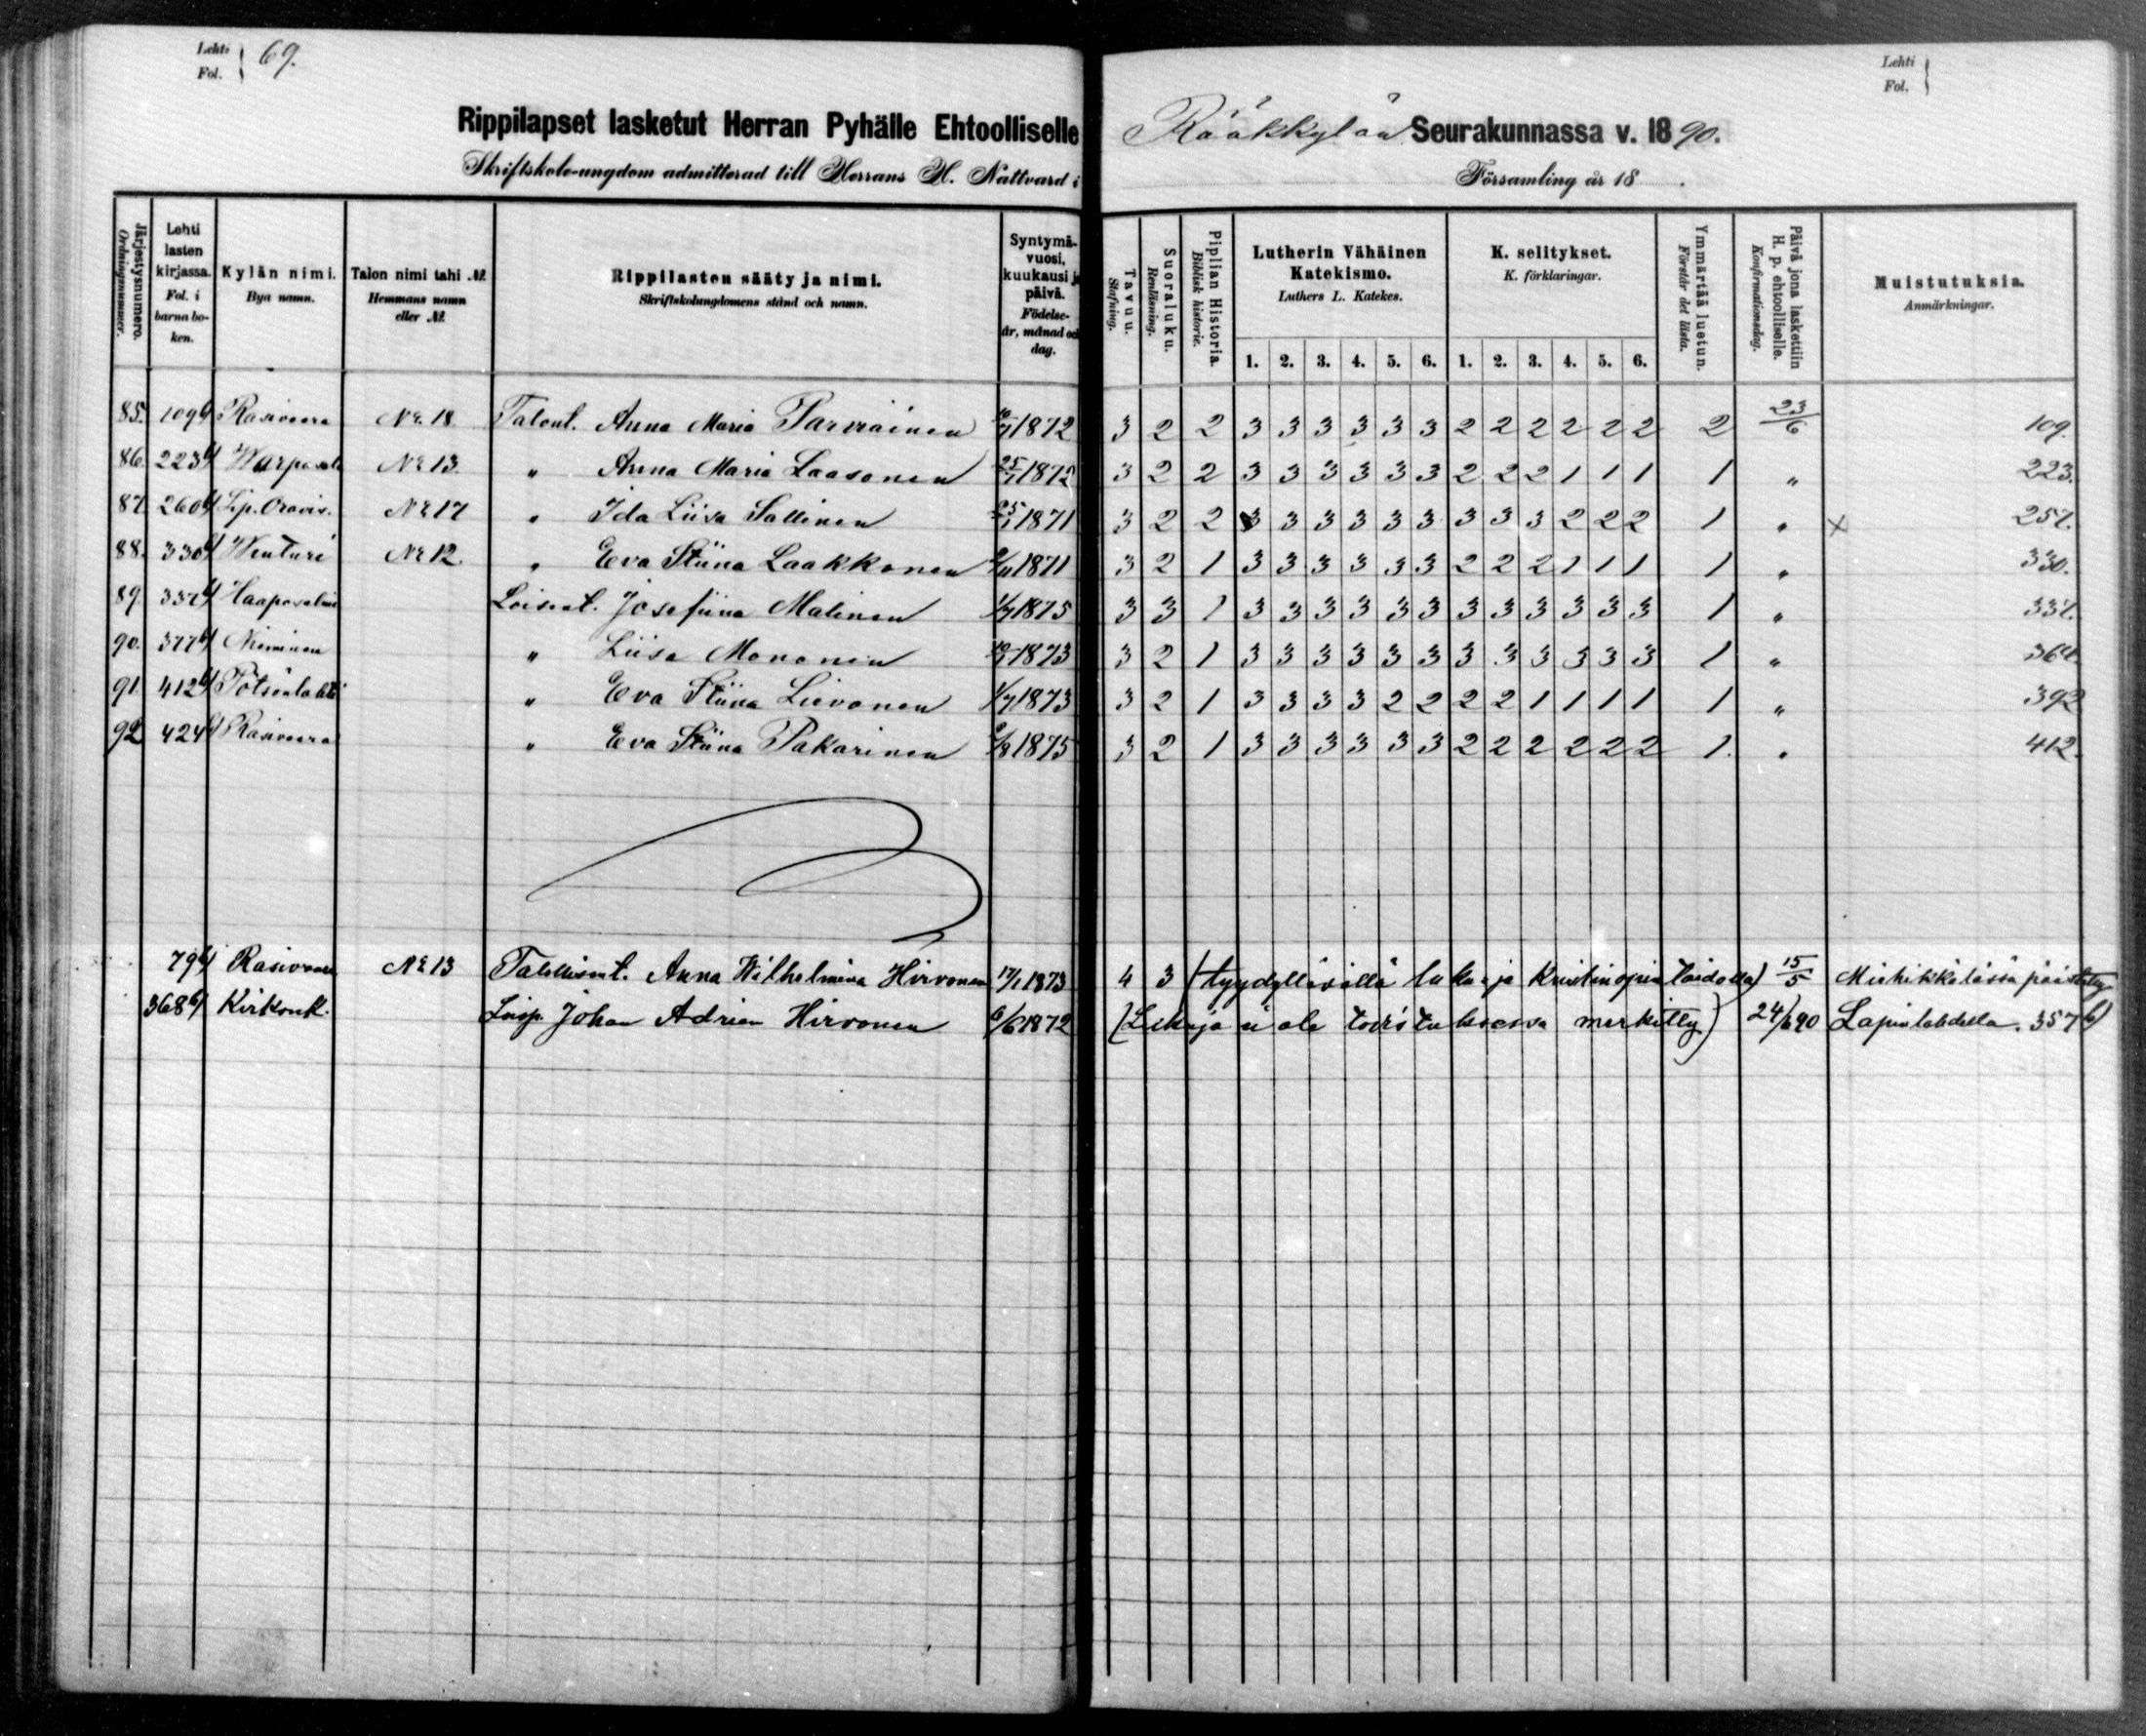 Lehti
Fol. } 69.
Rippilapset lasketut Herran Pyhälle Ehtoolliselle
Skriftskole-ungdom admitterad till Herrans H. Nattvard i
Järjestysnumero.
Ordningsnummer.
Lehti lasten kirjassa.
Fol. i barna boken.
Kylän nimi.
Bya namn.
Talon nimi tahi №
Hemmans namn eller №
Rippilasten sääty ja nimi.
Skriftskolungdomens stånd och namn.
Syntymävuosi, kuukausi ja päivä.
Födelseår, månad och dag.
85. 109 Rasivaara № 18 Talont. Anna Maria Parviainen 1872
86. 223 № 13 " Anna Maria Laasonen 25/ 1872
87. 260 Lip. Oravis. № 17 " Ida Liisa Sallinen 25/1 1871
88. 330 Wenturi № 12. " Eva Stiina Laakkonen 2/11 1871
89. 337 Haapasalmi Loisent. Josefiina Malinen 1/7 1875
90. 377 Nieminen " Liisa Mononen 1873
91. 412 Pötsönlahti " Eva Stiina Lievonen 1/7 1873
92. 424 Rasivaara " Eva Stiina Pakarinen 1875
79 Rasivaara № 13 Talollisent. Anna Wilhelmina Hirvonen 17/1 1873
368 Kirkonk. Loisp. Johan Adrian Hirvonen 6/6 1872
Lehti
Fol. }
Rääkkylän Seurakunnassa v. 1890.
Församling år 18 .
Tavuu.
Stafning.
Suoraluku.
Renläsning.
Piplian Historia.
Biblisk historie.
Lutherin Vähäinen Katekismo.
Luthers L. Katekes.
1. 2. 3. 4. 5. 6.
K. selitykset.
K. förklaringar.
1. 2. 3. 4. 5. 6.
Ymmärtää luetun.
Förstår det lästa.
Päivä jona laskettiin H. p. ehtoolliselle.
Konfirmationsdag.
Muistutuksia.
Anmärkningar.
3 2 2 3 3 3 3 3 3 2 2 2 2 2 2 2 23/6 109.
3 2 2 3 3 3 3 3 3 2 2 2 1 1 1 1 " 223.
3 2 2 3 3 3 3 3 3 3 3 3 2 2 2 1 " × 257.
3 2 1 3 3 3 3 3 3 2 2 2 1 1 1 1 " 330.
3 3 1 3 3 3 3 3 3 3 3 3 3 3 3 1 " 337.
3 2 1 3 3 3 3 3 3 3 3 3 3 3 3 1 "
3 2 1 3 3 3 3 2 2 2 2 1 1 1 1 1 " 392
3 2 1 3 3 3 3 3 3 2 2 2 2 2 2 1. " 412.
4 3 (tyydyttävällä luku- ja kristinopin taidolla) 15/5 Miehikkälässä päästetty
(Lukuja ei ole todistuksessa merkitty) 24/6 90 Lapinlahdella. 357